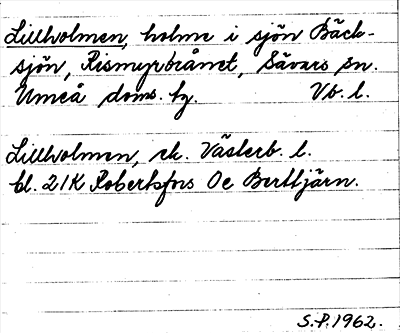 Lillholmen, holme i sjön Bäck-
sjön, Rismyrbrånet, Sävars sn.
Umeå doms. hg. Vb. l.
Lillholmen, ek. Västerb. l.
bl. 21K Robertsfors Oc Bertljärn.
S.P. 1962.